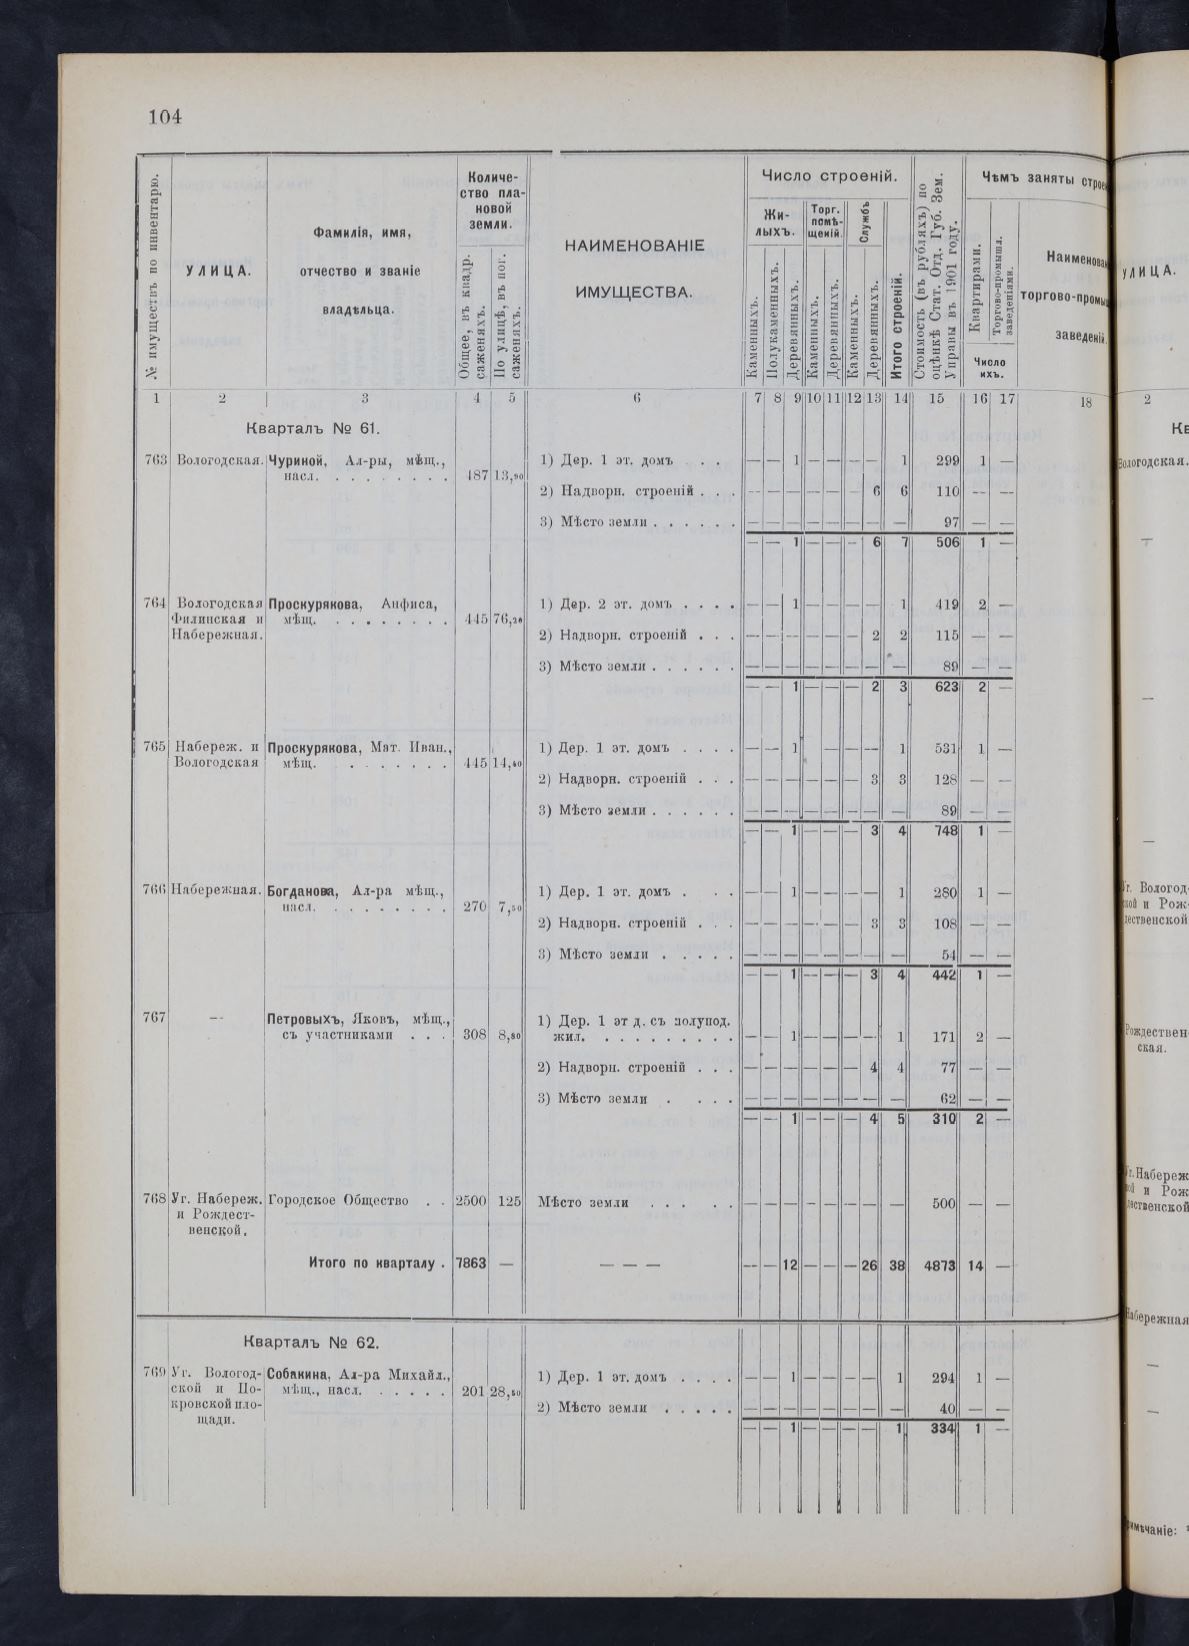 104
№ имуществъ по инвентарю.
УЛИЦА.
Фамилія, имя,
отчество и званіе
владѣльца.
Количе-
ство пла-
новой
земли.
Общее, въ квадр.
саженяхъ.
По улицѣ, въ пог.
саженяхъ.
НАИМЕНОВАНІЕ
ИМУЩЕСТВА.
Число строеній.
Жи-
лыхъ.
Торг.
помѣ-
щеній.
Службъ
Каменныхъ.
Полукаменныхъ.
Деревянныхъ.
Каменныхъ.
Деревянныхъ.
Каменныхъ.
Деревянныхъ.
Итого строеній.
Стоимость (въ рубляхъ) по
оцѣнкѣ Стат. Отд. Губ. Зем.
Управы въ 1901 году.
Чѣмъ заняты строе
Квартирами.
Торгово-промышл.
заведеніями.
Число
ихъ.
Наименован
торгово-промы
заведеній.
1 2 3 4 5 6 7 8 9 10 11 12 13 14 15 16 17 18
Кварталъ № 61.
763 Вологодская. Чуриной, Ал-ры, мѣщ., 1) Дер. 1 эт. домъ . . . — — 1 — — — — 1 299 1 —
насл. . . . . . . . . 487 13,90
2) Надворн. строеній . . . — — — — — — 6 6 110 — —
3) Мѣсто земли . . . . . . — — — — — — — — 97 — —
— — 1 — — — 6 7 506 1 —
764 Вологодская Проскурякова, Анфиса, 1) Дер. 2 эт. домъ . . . . — — 1 — — — — 1 419 2 —
Филинская и мѣщ. . . . . . . . . 445 76,20
Набережная. 2) Надворн. строеній . . . — — — — — — 2 2 115 — —
3) Мѣсто земли . . . . . . — — — — — — — — 89 — —
— — 1 — — — 2 3 623 2 —
765 Набереж. и Проскурякова, Мат. Иван., 1) Дер. 1 эт. домъ . . . . — — 1 — — — — 1 531 1 —
Вологодская мѣщ. . . . . . . . . 445 14,80
2) Надворн. строеній . . . — — — — — — 3 3 128 — —
3) Мѣсто земли . . . . . . — — — — — — — — 89 — —
— — 1 — — — 3 4 748 1 —
766 Набережная. Богданова, Ал-ра мѣщ., 1) Дер. 1 эт. домъ . . . — — 1 — — — — 1 280 1 —
насл. . . . . . . . . 270 7,50
2) Надворн. строеній . . . — — — — — — 3 3 108 — —
3) Мѣсто земли . . . . . — — — — — — — — 54 — —
— — 1 — — — 3 4 442 1 —
767 — Петровыхъ, Яковъ, мѣщ., 1) Дер. 1 эт д. съ полупод.
съ участниками . . . 308 8,80 жил. . . . . . . . . . — — 1 — — — — 1 171 2 —
2) Надворн. строеній . . . — — — — — — 4 4 77 — —
3) Мѣсто земли . . . . — — — — — — — — 62 — —
— — 1 — — — 4 5 310 2 —
768 Уг. Набереж. Городское Общество . . 2500 125 Мѣсто земли . . . . . — — — — — — — — 500 — —
и Рождест-
венской.
Итого по кварталу . 7863 — — — — — — 12 — — — 26 38 4873 14 —
Кварталъ № 62.
769 Уг. Вологод- Собакина, Ал-ра Михайл., 1) Дер. 1 эт. домъ . . . . — — 1 — — — — 1 294 1 —
ской и По- мѣщ., насл. . . . . . 201 28,80
кровской пло- 2) Мѣсто земли . . . . . — — — — — — — — 40 — —
щади.
— — 1 — — — — 1 334 1 —
УЛИЦА.
2
Кв
Вологодская.
—
—
—
Уг. Вологод-
ской и Рож-
дественской
Рождествен
ская.
Уг. Набереж
и Рож
дественской
Набережная
—
—
Примѣчаніе: